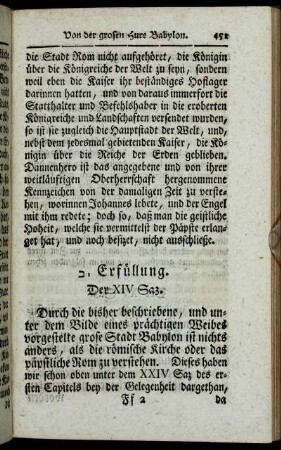 Von der grosen Hure Babylon. 451
die Stadt Rom nicht aufgehöret, die Königin
über die Königreiche der Welt zu seyn, sondern
weil eben die Kaiser ihr beständiges Hoflager
darinnen hatten, und von daraus immerfort die
Statthalter und Befehlshaber in die eroberten
Königreiche und Landschaften versendet wurden,
so ist sie zugleich die Hauptstadt der Welt, und,
nebst dem jedesmal gebietenden Kaiser, die Kö-
nigin über die Reiche der Erden geblieben.
Dannenhero ist das angegebene und von ihrer
weitläufigen Oberherrschaft hergenommene
Kennzeichen von der damaligen Zeit zu verste-
hen, worinnen Johannes lebete, und der Engel
mit ihm redete; doch so, daß man die geistliche
Hoheit, welche sie vermittelst der Päpste erlan-
get hat, und noch besizet, nicht ausschließe.
ב. Erfüllung.
Der XIV Saz.
Durch die bisher beschriebene, und un-
ter dem Bilde eines prächtigen Weibes
vorgestellte grose Stadt Babylon ist nichts
anders, als die römische Kirche oder das
päpstliche Rom zu verstehen. Dieses haben
wir schon oben unter dem XXIV Saz des er-
sten Capitels bey der Gelegenheit dargethan,
Ff 2 da